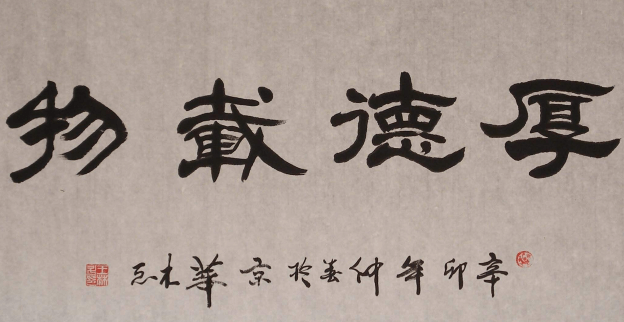 厚德載物
辛卯年仲春於京華木忘